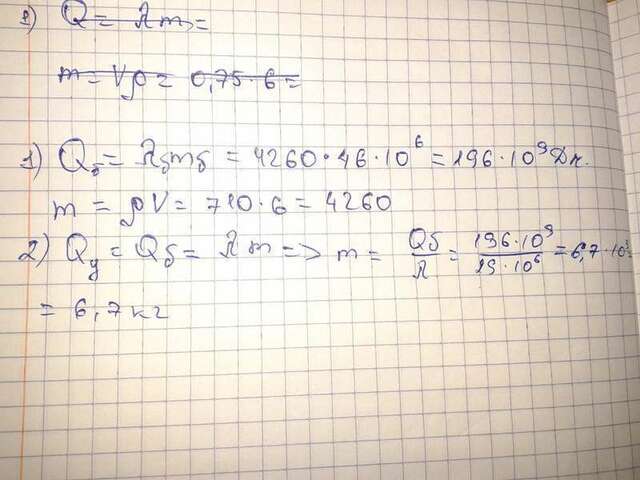 2) Q = λm =
m = Vρ = 0,75·6 =
1) Qб = λбmб = 4260·46·10⁶ = 196·10⁹ Дж.
m = ρV = 710·6 = 4260
2) Qу = Qб = λm => m = Qб/λ = 196·10⁹/29·10⁶ = 6,7·10³
= 6,7кг